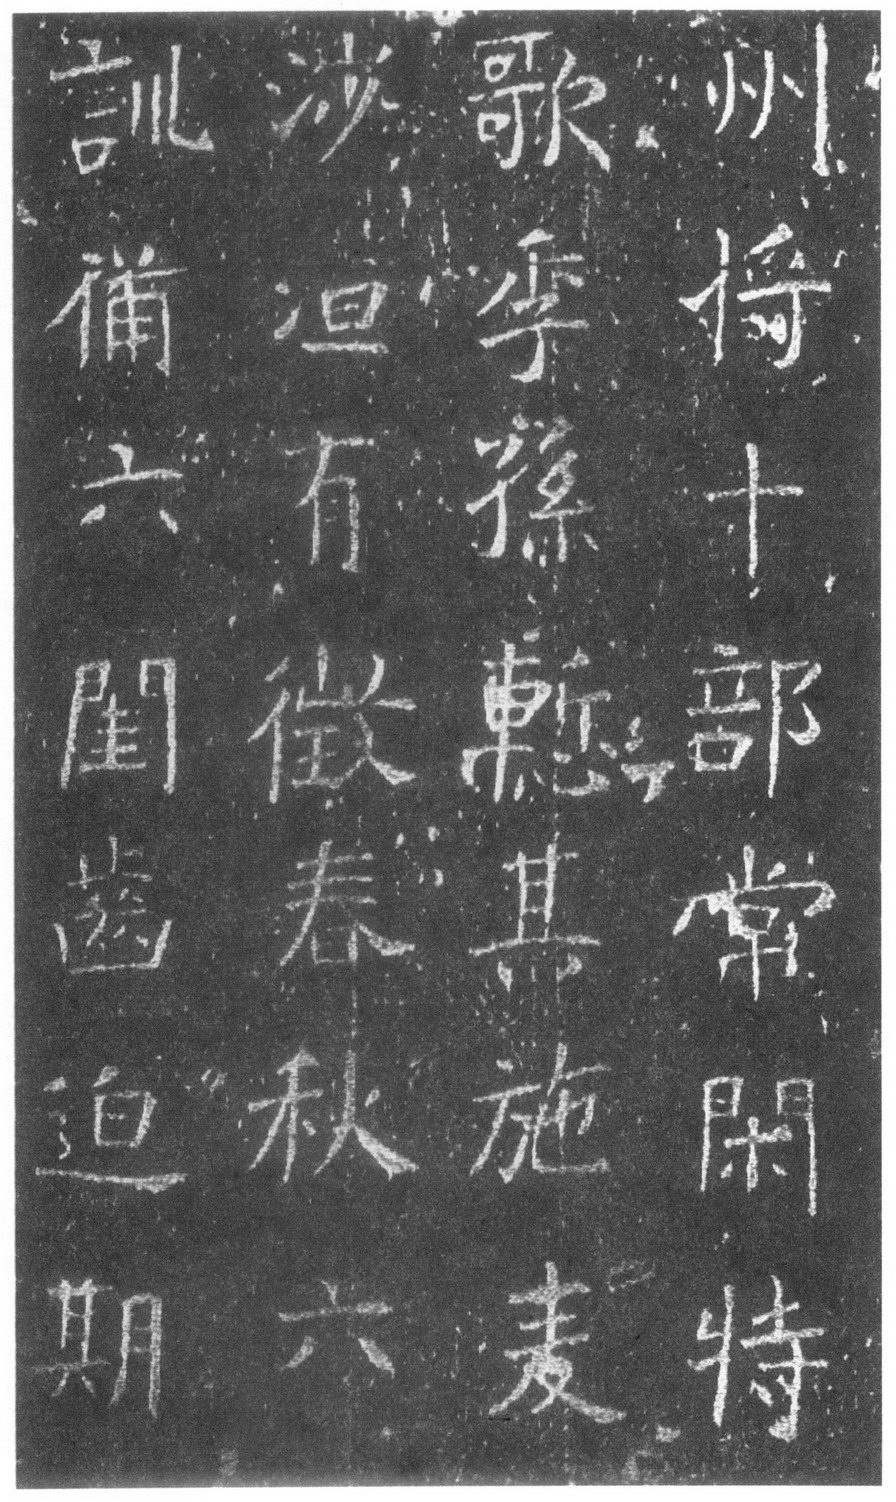 州将十部常閑特
歌季孫慙其施麦
涉洹有徵春秋六
訓備六閨齒迫期